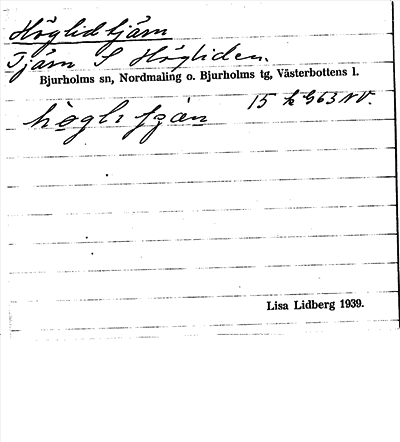 Höglidtjärn
Tjärn S Högliden.
Bjurholms sn, Nordmaling o. Bjurholms tg, Västerbottens l.
15 k
Lisa Lidberg 1939.